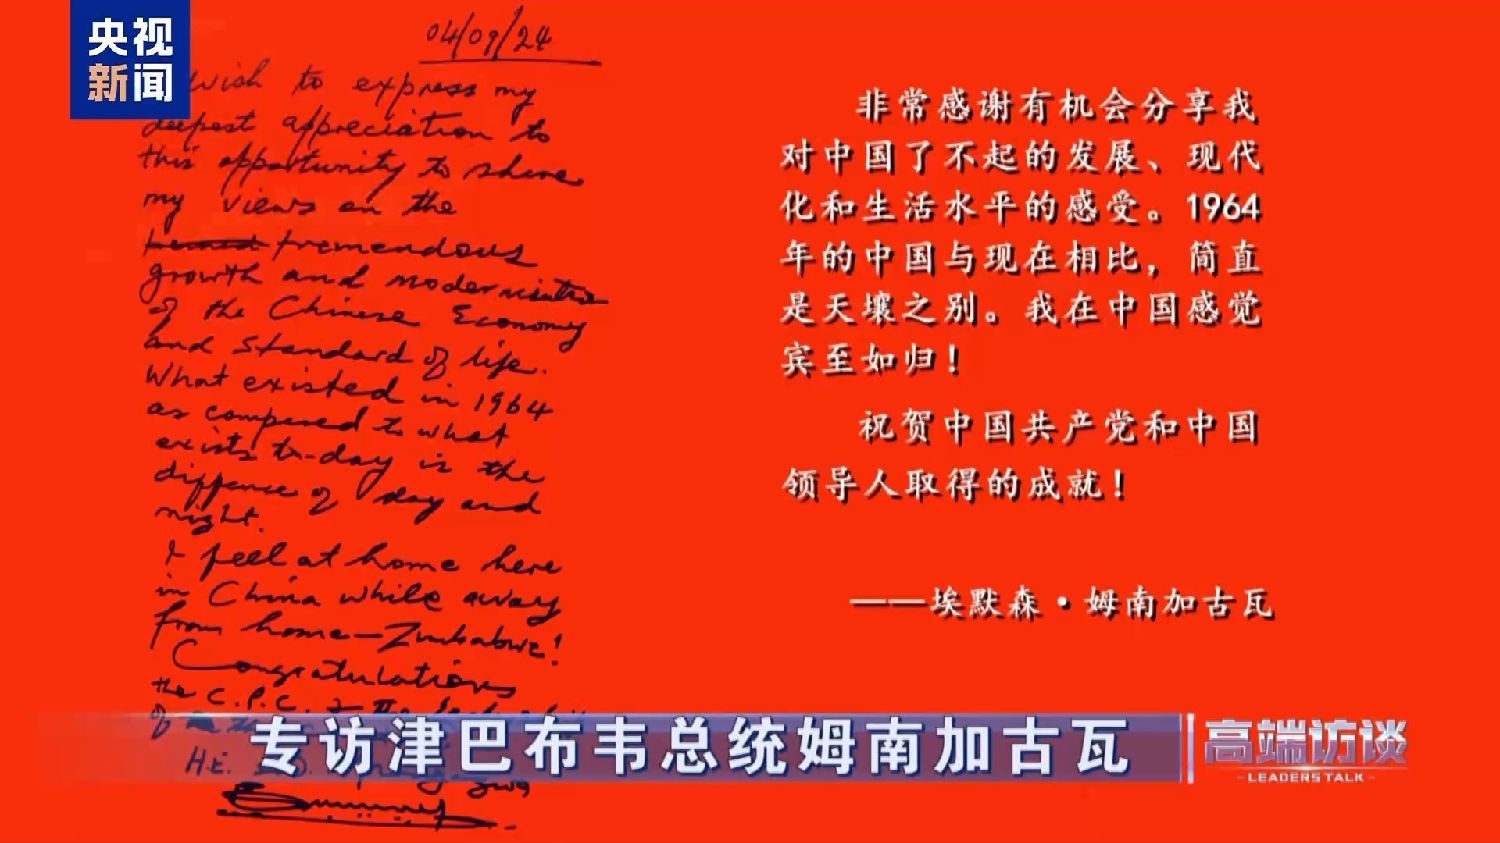 央视
新闻
04/09/24
wish to express my
deepest appreciation to
this opportunity to share
my views on the
tremendous
growth and modernisation
of the Chinese Economy
and standard of life.
What existed in 1964
as compared to what
exists to-day is the
diffence of day and
night.
I feel at home here
in China while away
from home—Zimbabwe!
Congratulations
the C.P.C.
of
H.E.
非常感谢有机会分享我
对中国了不起的发展、现代
化和生活水平的感受。1964
年的中国与现在相比，简直
是天壤之别。我在中国感觉
宾至如归！
祝贺中国共产党和中国
领导人取得的成就！
——埃默森·姆南加古瓦
专访津巴布韦总统姆南加古瓦
高端访谈
-LEADERS TALK-